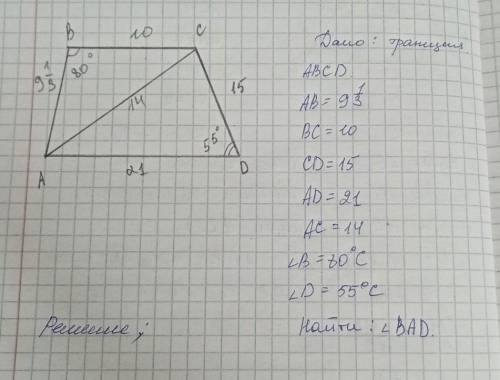 B 10 C
9 1/3 80° 15
14
55°
A 21 D
Дано: трапеция
ABCD
AB = 9 1/3
BC = 10
CD = 15
AD = 21
AC = 14
∠B = 80°C
∠D = 55°C
Решение;
Найти: ∠BAD.